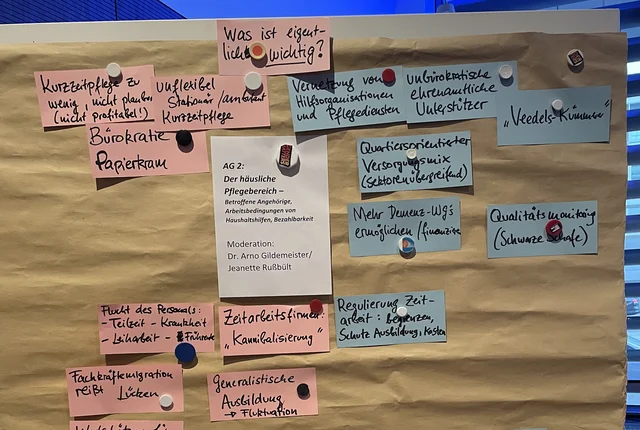 Was ist eigent-
lich wichtig?
Kurzzeitpflege zu
wenig, nicht planbar
(nicht profitabel!)
unflexibel
Stationär/ambulant
Kurzzeitpflege
Bürokratie
Papierkram
Vernetzung von
Hilfsorganisationen
und Pflegediensten
unbürokratische
ehrenamtliche
Unterstützer
"Veedels-Kümmerer"
AG 2:
Der häusliche
Pflegebereich –
Betroffene Angehörige,
Arbeitsbedingungen von
Haushaltshilfen, Bezahlbarkeit
Moderation:
Dr. Arno Gildemeister/
Jeanette Rußbült
Quartiersorientierter
Versorgungsmix
(Sektorenübergreifend)
Mehr Demenz-Wg's
ermöglichen/finanzieren
Qualitätsmonitoring
(Schwarze Schafe)
Flucht des Personals:
- Teilzeit - Krankheit
- Leiharbeit -
Zeitarbeitsfirmen:
"Kannibalisierung"
Regulierung Zeit-
arbeit: begrenzen,
Schutz Ausbildung, Kosten
Fachkräftemigration
reißt Lücken
Generalistische
Ausbildung
→ Fluktuation